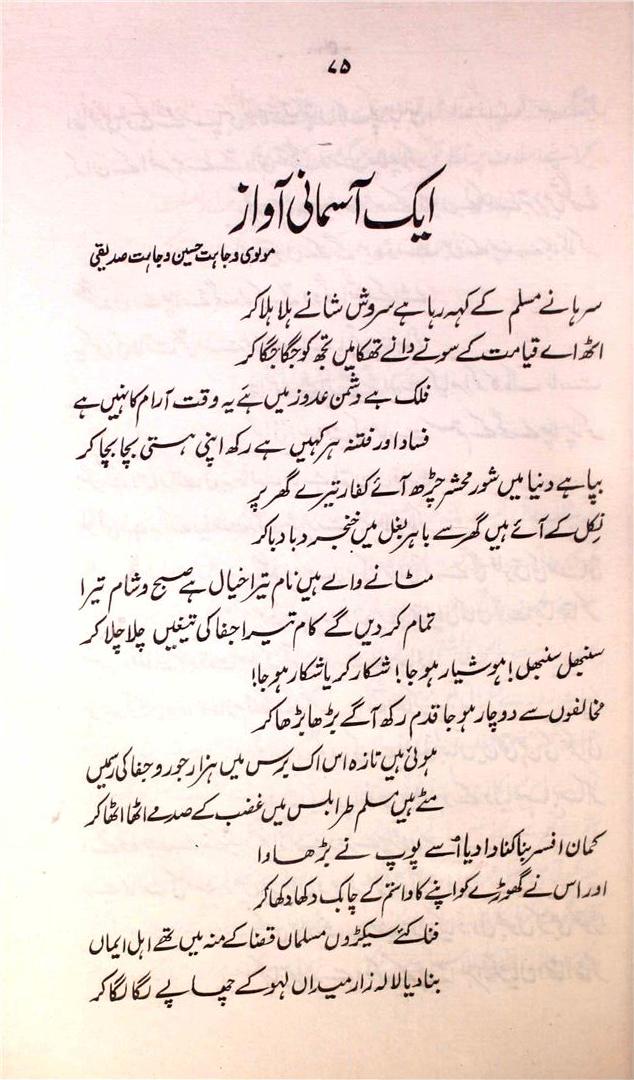 ۷۵
ایک آسمانی آواز
مولوی وجاہت حسین وجاہت صدیقی
سرہانے مسلم کے کہہ رہا ہے سروش شانے ہلا ہلا کر
اٹھ اے قیامت کے سونے والے تھکا میں تجھ کو جگا جگا کر
فلک ہے دشمن عدو زمیں ہے یہ وقت آرام کا نہیں ہے
فساد اور فتنہ ہر کہیں ہے رکھ اپنی ہستی بچا بچا کر
بپا ہے دنیا میں شور محشر چڑھ آئے کفار تیرے گھر پر
نکل کے آئے ہیں گھر سے باہر بغل میں خنجر دبا دبا کر
مٹانے والے ہیں نام تیرا خیال ہے صبح و شام تیرا
تمام کر دیں گے کام تیرا جفا کی تیغیں چلا چلا کر
سنبھل سنبھل! ہوشیار ہو جا! شکار کر یا شکار ہو جا!
مخالفوں سے دوچار ہو جا قدم رکھ آگے بڑھا بڑھا کر
ہوئی ہیں تازہ اس اک برس میں ہزار جور و جفا کی رسمیں
مٹے ہیں مسلم طرابلس میں غضب کے صدمے اٹھا اٹھا کر
کمان افسر بنا کنادا دیا اسے پوپ نے بڑھاوا
اور اس نے گھوڑے کو اپنے کاوا ستم کے چابک دکھا دکھا کر
فنا کئے سیکڑوں مسلماں قضا کے منہ میں تھے اہل ایماں
بنا دیا لالہ زار میداں لہو کے چھاپے لگا لگا کر